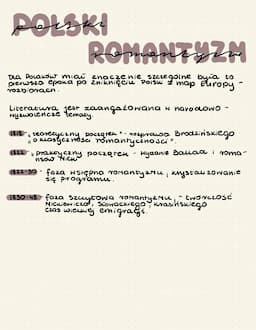 POLSKI
polski
ROMANTYZM
romantyzm
Dla Polaków miał znaczenie szczególne była to
pierwsza epoka po zniknięciu Polski z map Europy -
rozbiorach.
Literatura jest zaangażowana w narodowo -
wyzwoleńcze tematy.
1818 - teoretyczny początek - rozprawa Brodzińskiego
"o klasyczności i romantyczności".
1822 - praktyczny początek - wydanie Ballad i roma-
nsów Mick
1822-30 - faza wstępna romantyzmu, krystalizowanie
się programu.
1830-48 - faza szczytowa romantyzmu, - twórczość
Mickiewicza, Słowackiego, Krasińskiego
czas wielkiej emigracji.